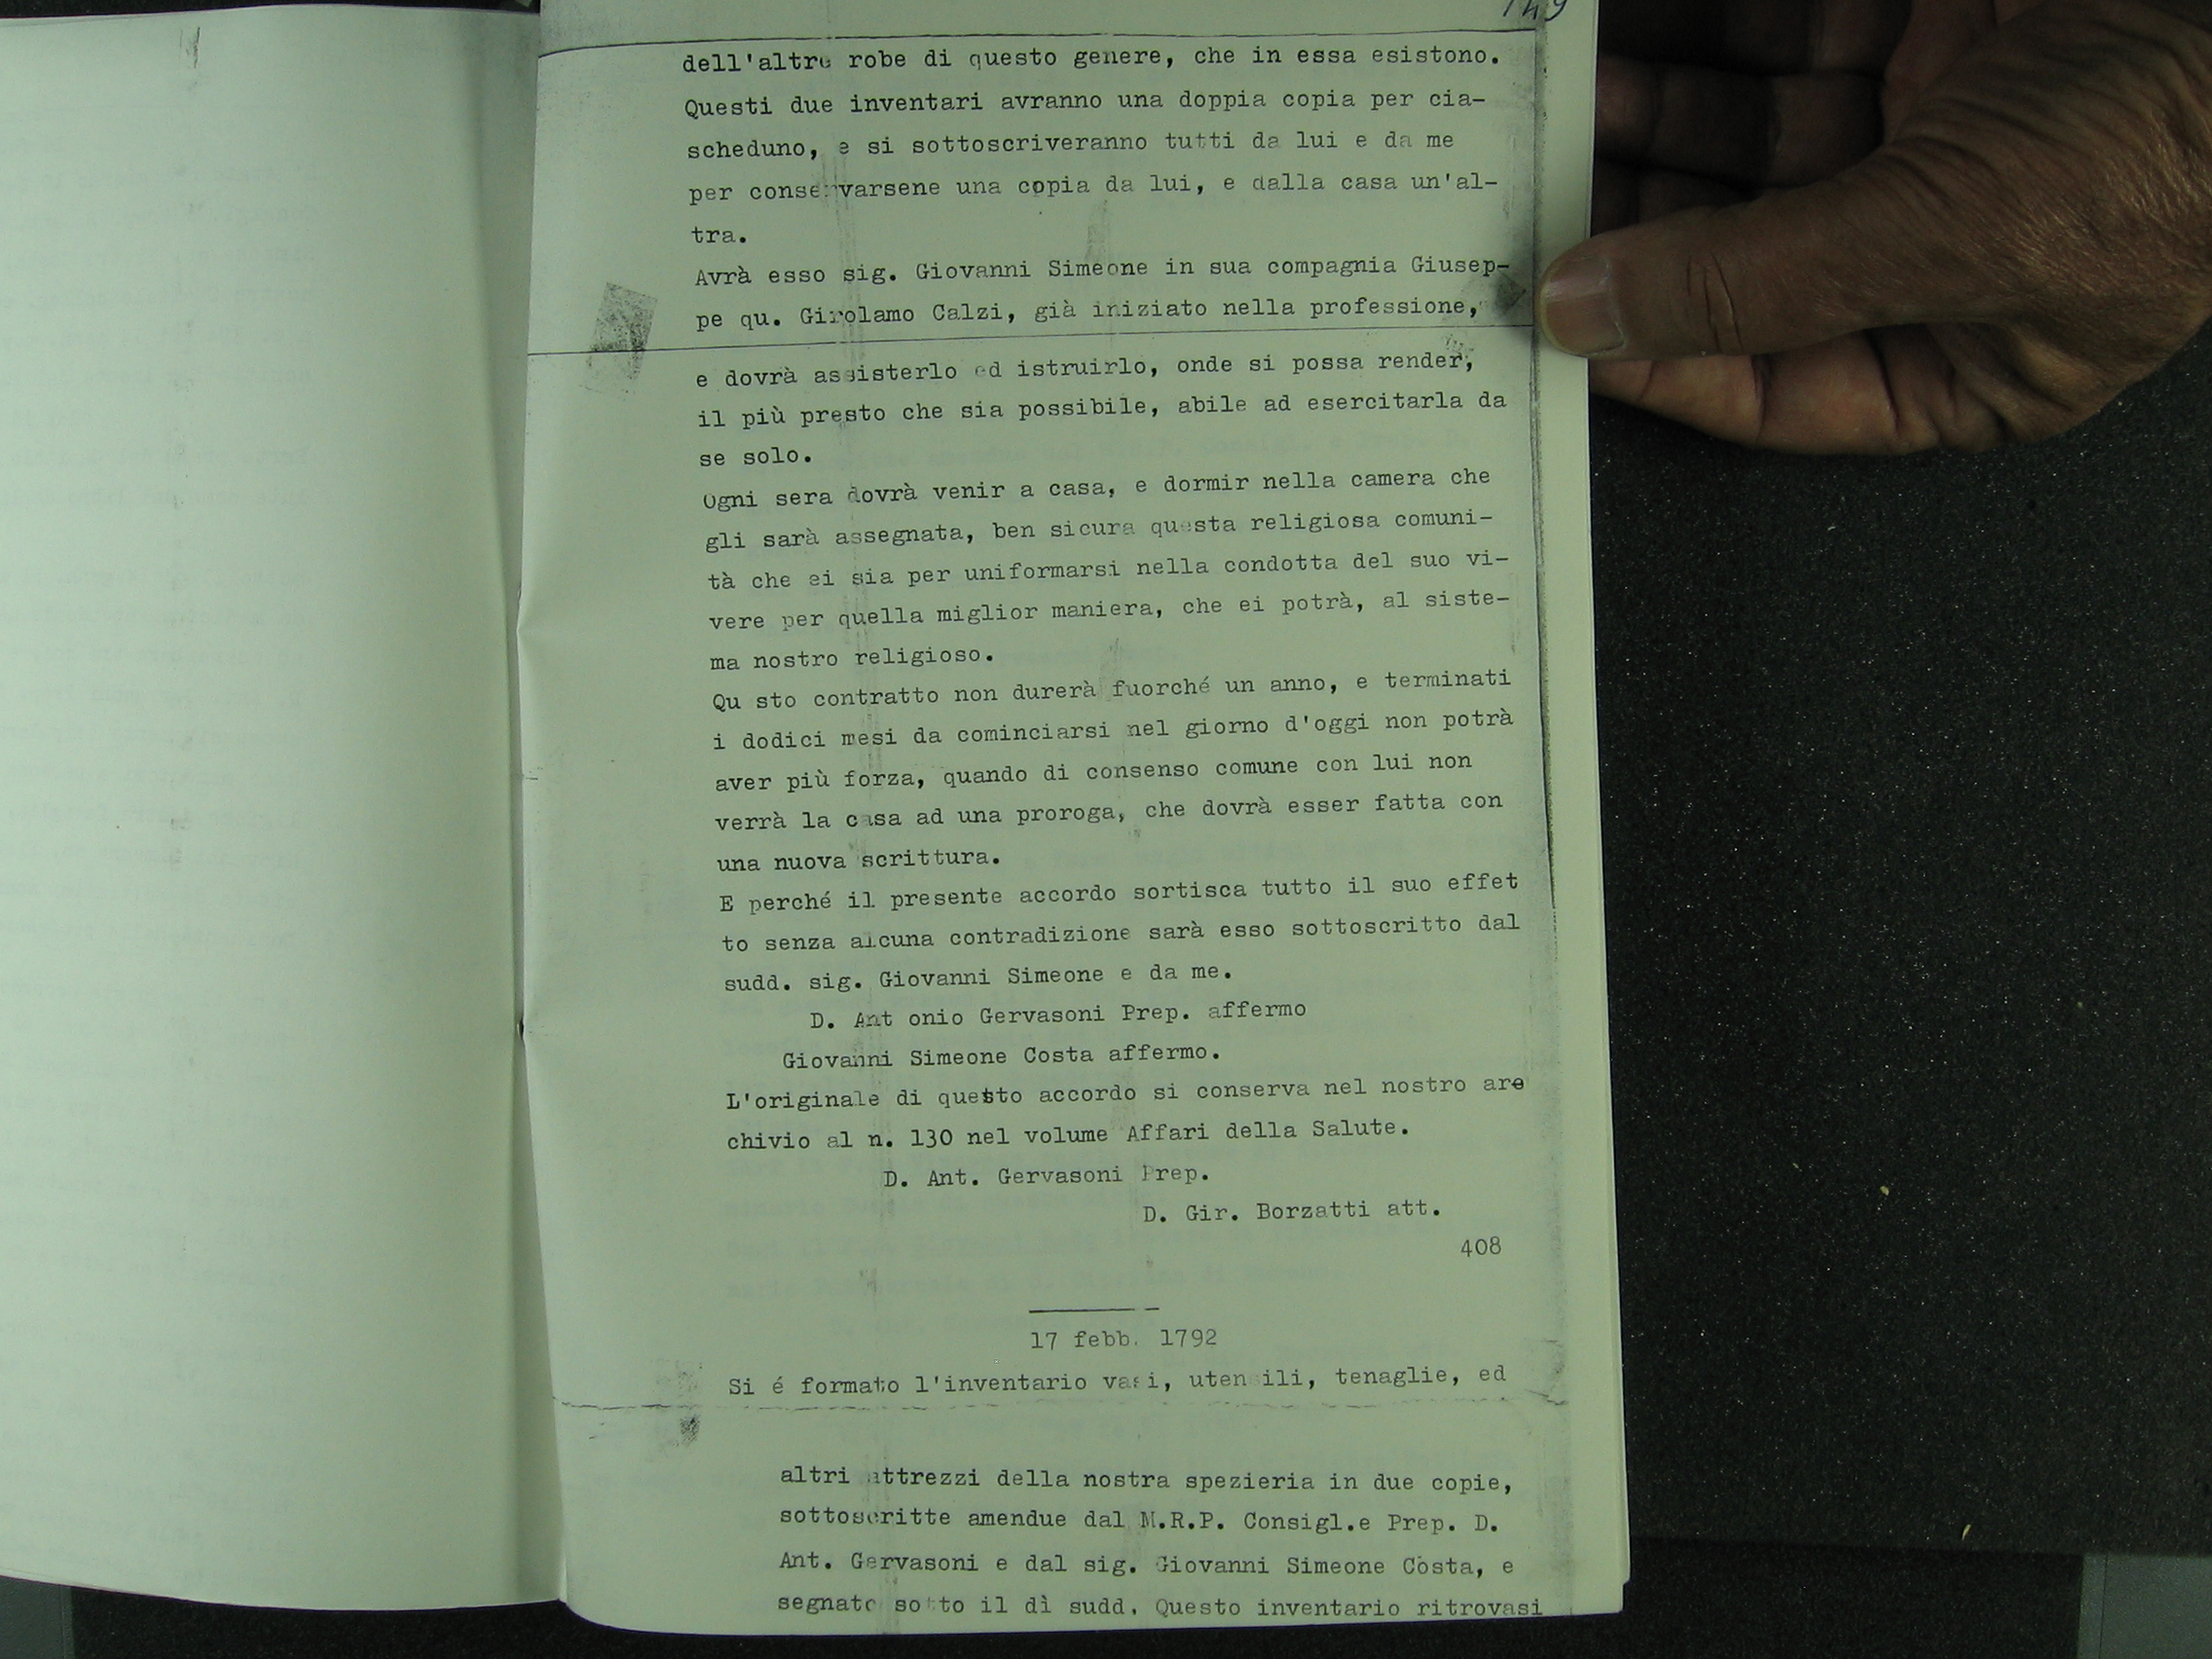 149
dell'altre robe di questo genere, che in essa esistono.
Questi due inventari avranno una doppia copia per cia-
scheduno, e si sottoscriveranno tutti da lui e da me
per conservarsene una copia da lui, e dalla casa un'al-
tra.
Avrà esso sig. Giovanni Simeone in sua compagnia Giusep-
pe qu. Girolamo Calzi, già iniziato nella professione,
e dovrà assisterlo ed istruirlo, onde si possa render,
il più presto che sia possibile, abile ad esercitarla da
se solo.
Ogni sera dovrà venir a casa, e dormir nella camera che
gli sarà assegnata, ben sicura questa religiosa comuni-
tà che ei sia per uniformarsi nella condotta del suo vi-
vere per quella miglior maniera, che ei potrà, al siste-
ma nostro religioso.
Qu sto contratto non durerà fuorché un anno, e terminati
i dodici mesi da cominciarsi nel giorno d'oggi non potrà
aver più forza, quando di consenso comune con lui non
verrà la casa ad una proroga, che dovrà esser fatta con
una nuova scrittura.
E perché il presente accordo sortisca tutto il suo effet
to senza alcuna contradizione sarà esso sottoscritto dal
sudd. sig. Giovanni Simeone e da me.
D. Ant onio Gervasoni Prep. affermo
Giovanni Simeone Costa affermo.
L'originale di questo accordo si conserva nel nostro are
chivio al n. 130 nel volume Affari della Salute.
D. Ant. Gervasoni Prep.
D. Gir. Borzatti att.
408
17 febb. 1792
Si é formato l'inventario vasi, utensili, tenaglie, ed
altri attrezzi della nostra spezieria in due copie,
sottoscritte amendue dal M.R.P. Consigl.e Prep. D.
Ant. Gervasoni e dal sig. Giovanni Simeone Costa, e
segnato sotto il dì sudd. Questo inventario ritrovasi